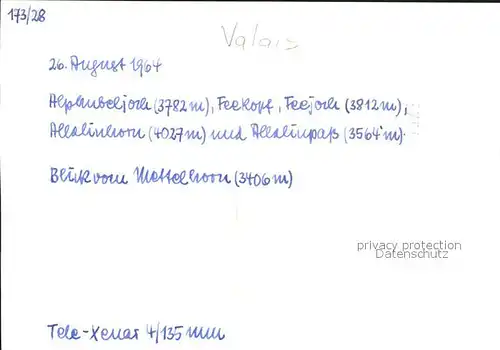 173/28
Valais
26. August 1964
Alphubeljoch (3782 m), Feekopf, Feejoch (3812 m),
Allalinhorn (4027 m) und Allalinpaß (3564 m).
Blick vom Mettelhorn (3406 m)
privacy protection
Datenschutz
Tele-Xenar 4/135 mm